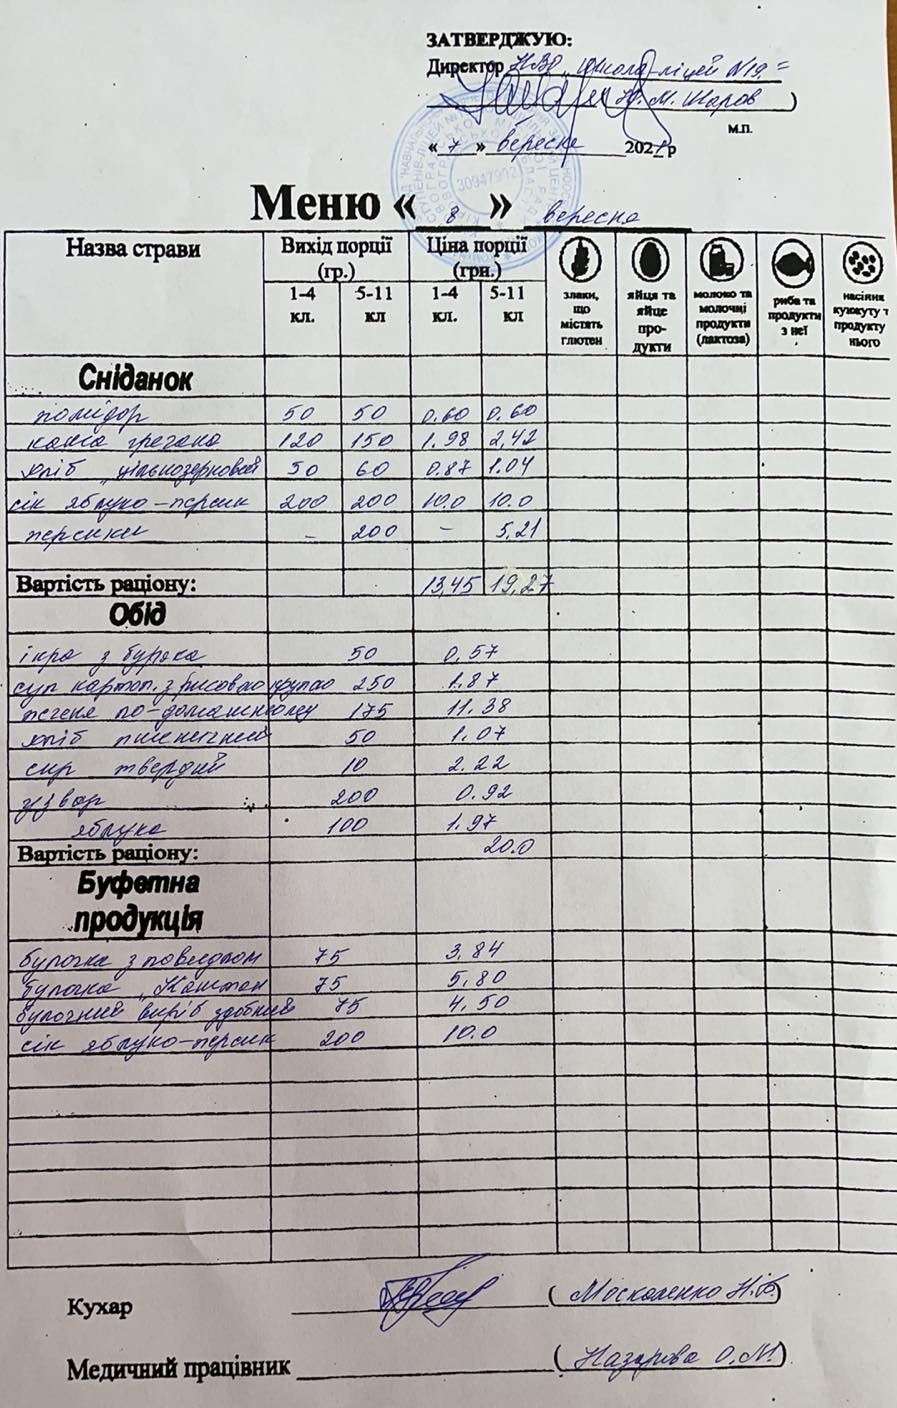 ЗАТВЕРДЖУЮ:
Директор НВО „школа-ліцей №19"
( Ю.М. Шаров )
М.П.
« 7 » вересня 2021р
30947912
Меню « 8 » вересня
Назва страви Вихід порції (гр.) Ціна порції (грн.) злаки, що містять глютен яйця та яйце про-дукти молоко та молочні продукти (лактоза) риба та продукти з неї насіння кунжуту т продукту нього
1-4 кл. 5-11 кл 1-4 кл. 5-11 кл
Сніданок
помідор 50 50 0.60 0.60
каша гречана 120 150 1.98 2,42
хліб „цільнозерновий 50 60 0.87 1.04
сік яблуко-персик 200 200 10.0 10.0
персики - 200 - 5,21
Вартість раціону: 13,45 19,27
Обід
ікра з буряка 50 0,57
суп картоп. з рисовою крупою 250 1.87
печеня по-домашньому 175 11.38
хліб пшеничний 50 1.07
сир твердий 10 2.22
узвар 200 0.92
яблука 100 1.97
Вартість раціону: 20.0
Буфетна
продукція
булочка з повидлом 75 3,84
булочка „Каштан 75 5,80
булочний виріб здобний 75 4.50
сік яблуко-персик 200 10.0
Кухар ( Москаленко Н.В. )
Медичний працівник ( Назарова О.М. )